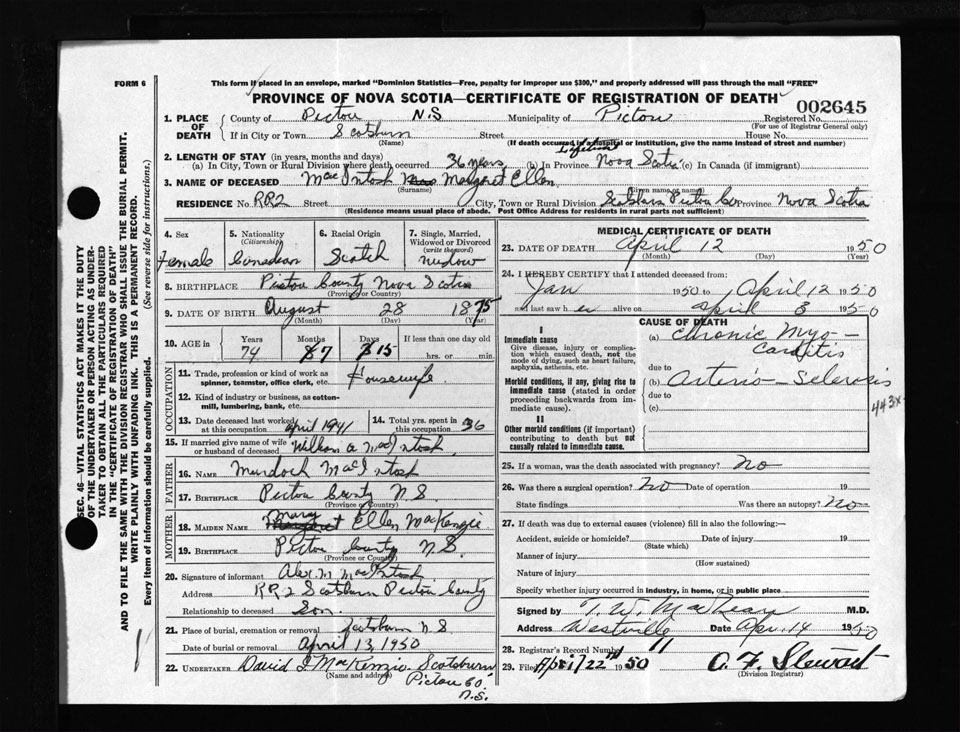 FORM 6
This form if placed in an envelope, marked "Dominion Statistics—Free, penalty for improper use $300," and properly addressed will pass through the mail "FREE"
PROVINCE OF NOVA SCOTIA—CERTIFICATE OF REGISTRATION OF DEATH
002645
1. PLACE OF DEATH
County of Pictou N.S Municipality of Pictou Registered No.
(For use of Registrar General only)
If in City or Town Scotsburn Street House No.
(Name) (If death occurred in a hospital or institution, give the name instead of street and number)
2. LENGTH OF STAY (in years, months and days)
(a) In City, Town or Rural Division where death occurred 36 years (b) In Province Lifetime Nova Scotia (c) In Canada (if immigrant)
3. NAME OF DECEASED MacIntosh Margaret Ellen
(Surname) (Given name or names)
RESIDENCE No. RR2 Street City, Town or Rural Division Scotsburn Pictou Co Province Nova Scotia
(Residence means usual place of abode. Post Office Address for residents in rural parts not sufficient)
4. Sex Female
5. Nationality (Citizenship) Canadian
6. Racial Origin Scotch
7. Single, Married, Widowed or Divorced (write the word) widow
8. BIRTHPLACE Pictou County Nova Scotia
(Province or Country)
9. DATE OF BIRTH August 28 1875
(Month) (Day) (Year)
10. AGE in Years Months Days If less than one day old
74 7 15 hrs. or min.
OCCUPATION
11. Trade, profession or kind of work as spinner, teamster, office clerk, etc. Housewife
12. Kind of industry or business, as cotton-mill, lumbering, bank, etc.
13. Date deceased last worked at this occupation april 1941
14. Total yrs. spent in this occupation 36
15. If married give name of wife or husband of deceased William A. MacIntosh
FATHER
16. NAME Murdoch MacIntosh
17. BIRTHPLACE Pictou County N.S.
(Province or Country)
MOTHER
18. MAIDEN NAME Mary Margaret Ellen MacKenzie
19. BIRTHPLACE Pictou County N.S.
(Province or Country)
20. Signature of informant Alex. M MacIntosh
Address RR2 Scotsburn Pictou County
Relationship to deceased Son.
21. Place of burial, cremation or removal Scotsburn N.S.
Date of burial or removal April 13, 1950
22. UNDERTAKER David J MacKenzie Scotsburn
(Name and address)
Pictou Co.
N.S.
MEDICAL CERTIFICATE OF DEATH
23. DATE OF DEATH April 12 1950
(Month) (Day) (Year)
24. I HEREBY CERTIFY that I attended deceased from:
Jan 1950 to April 12 1950
and last saw her alive on April 8 1950
CAUSE OF DEATH
I
Immediate cause
Give disease, injury or complication which caused death, not the mode of dying, such as heart failure, asphyxia, asthenia, etc.
(a) Chronic Myo-
Carditis
due to
Morbid conditions, if any, giving rise to immediate cause (stated in order proceeding backwards from immediate cause).
(b) Arterio-Sclerosis
due to
(c)
443x
II
Other morbid conditions (if important) contributing to death but not causally related to immediate cause.
25. If a woman, was the death associated with pregnancy? No
26. Was there a surgical operation? No Date of operation 19
State findings Was there an autopsy? No
27. If death was due to external causes (violence) fill in also the following:—
Accident, suicide or homicide? Date of injury 19
(State which)
Manner of injury
(How sustained)
Nature of injury
Specify whether injury occurred in industry, in home, or in public place
Signed by T. W. MacLean M.D.
Address Westville Date Apr. 14 1950
28. Registrar's Record Number 11
29. Filed April 22nd 1950 O. F. Stewart
(Division Registrar)
SEC. 46—VITAL STATISTICS ACT MAKES IT THE DUTY
OF THE UNDERTAKER OR PERSON ACTING AS UNDER-
TAKER TO OBTAIN ALL THE PARTICULARS REQUIRED
IN THE "CERTIFICATE OF REGISTRATION OF DEATH"
AND TO FILE THE SAME WITH THE DIVISION REGISTRAR WHO SHALL ISSUE THE BURIAL PERMIT.
WRITE PLAINLY WITH UNFADING INK. THIS IS A PERMANENT RECORD.
Every item of information should be carefully supplied. (See reverse side for instructions.)